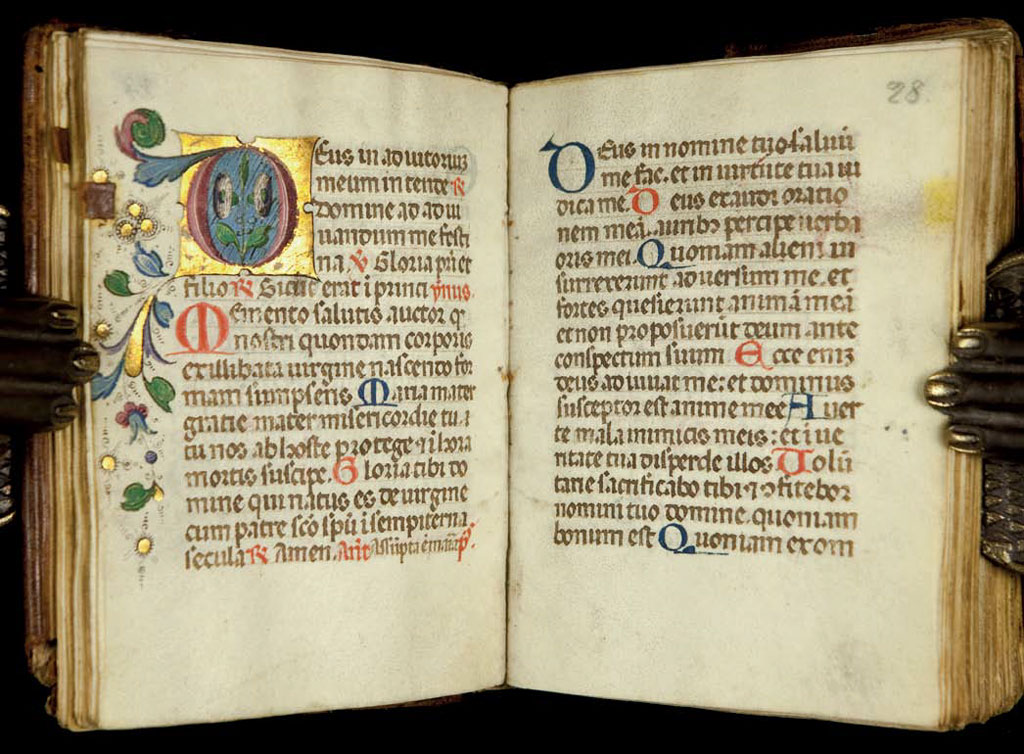 Deus in adiutorium
meum intende R
Domine ad adiu
uandum me festi
na. V Gloria pri et
filio R Sicut erat i princi ymnus.
Memento salutis auctor q
nostri quondam corporis
ex illibata uirgine nascendo for
mam sumpseris. Maria mater
gratie mater misericordie tu
tu nos ab hoste protege i hora
mortis suscipe. Gloria tibi do
mine qui natus es de uirgine
cum patre sco spu i sempiterna
secula R Amen. Ant Assupta e maria ps.
28
Deus in nomine tuo saluu
me fac. et in uirtute tua iu
dica me. Deus exaudi oratio
nem mea. auribz percipe uerba
oris mei. Quoniam alieni in
surrexerunt aduersum me. et
fortes quesierunt anima mea
et non proposuerut deum ante
conspectum suum Ecce enim
deus adiuuat me: et dominus
susceptor est anime mee Auer
te mala inimicis meis: et i ue
ritate tua disperde illos Uolu
tarie sacrificabo tibi 7 ꝯfitebor
nomini tuo domine. quoniam
bonum est Quoniam ex om